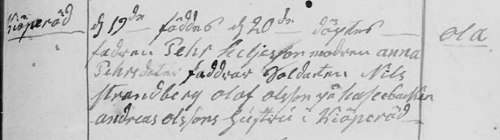 Kiöperöd d 19de föddes d 20de döptes ola
fadren Pehr Kieljesson modren anna
Pehrsdoter faddrar Soldaten Nils
Strandberg olof olsson på
andreas olssons hustru i Kiöperöd